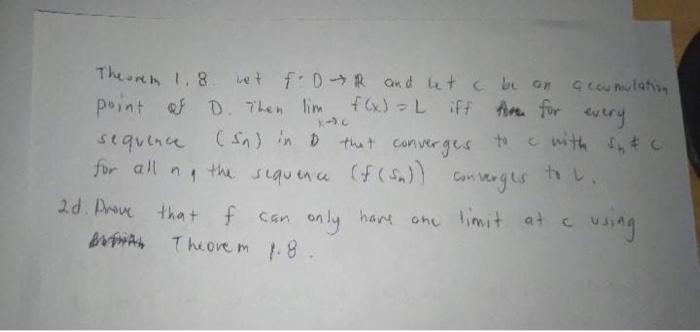 Theorem 1.8. Let f: D → R and let c be an accumulation
point of D. Then lim f(x) = L iff for every
x→c
sequence (sn) in D that converges to c with sn ≠ c
for all n, the sequence (f(sn)) converges to L.
2d. Prove that f can only have one limit at c using
Theorem 1.8.